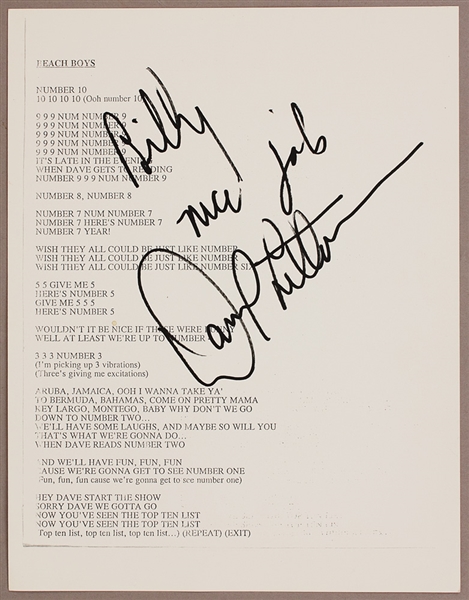 BEACH BOYS
NUMBER 10
10 10 10 10 (Ooh number 10)
9 9 9 NUM NUMBER 9
9 9 9 NUM NUMBER 9
9 9 9 NUM NUMBER 9
9 9 9 NUM NUMBER 9
9 9 9 NUM NUMBER 9
IT'S LATE IN THE EVENING
WHEN DAVE GETS TO READING
NUMBER 9 9 9 NUM NUMBER 9
NUMBER 8, NUMBER 8
NUMBER 7 NUM NUMBER 7
NUMBER 7 HERE'S NUMBER 7
NUMBER 7 YEAR!
WISH THEY ALL COULD BE JUST LIKE NUMBER
WISH THEY ALL COULD BE JUST LIKE NUMBER
WISH THEY ALL COULD BE JUST LIKE NUMBER SIX
5 5 GIVE ME 5
HERE'S NUMBER 5
GIVE ME 5 5 5
HERE'S NUMBER 5
WOULDN'T IT BE NICE IF THERE WERE
WELL AT LEAST WE'RE UP TO NUMBER
3 3 3 NUMBER 3
(I'm picking up 3 vibrations)
(Three's giving me excitations)
ARUBA, JAMAICA, OOH I WANNA TAKE YA'
TO BERMUDA, BAHAMAS, COME ON PRETTY MAMA
KEY LARGO, MONTEGO, BABY WHY DON'T WE GO
DOWN TO NUMBER TWO...
WE'LL HAVE SOME LAUGHS, AND MAYBE SO WILL YOU
THAT'S WHAT WE'RE GONNA DO...
WHEN DAVE READS NUMBER TWO
AND WE'LL HAVE FUN, FUN, FUN
CAUSE WE'RE GONNA GET TO SEE NUMBER ONE
(Fun, fun, fun cause we're gonna get to see number one)
HEY DAVE START THE SHOW
SORRY DAVE WE GOTTA GO
NOW YOU'VE SEEN THE TOP TEN LIST
NOW YOU'VE SEEN THE TOP TEN LIST
(Top ten list, top ten list, top ten list...) (REPEAT) (EXIT)
Billy
nice job
David Letterman